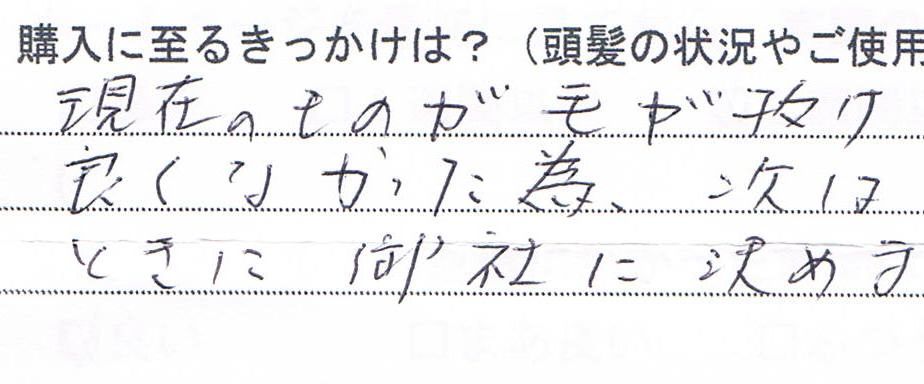 購入に至るきっかけは？（頭髪の状況やご使用
現在のものが毛が抜け
良くなかった為、次は
ときに御社に決めま